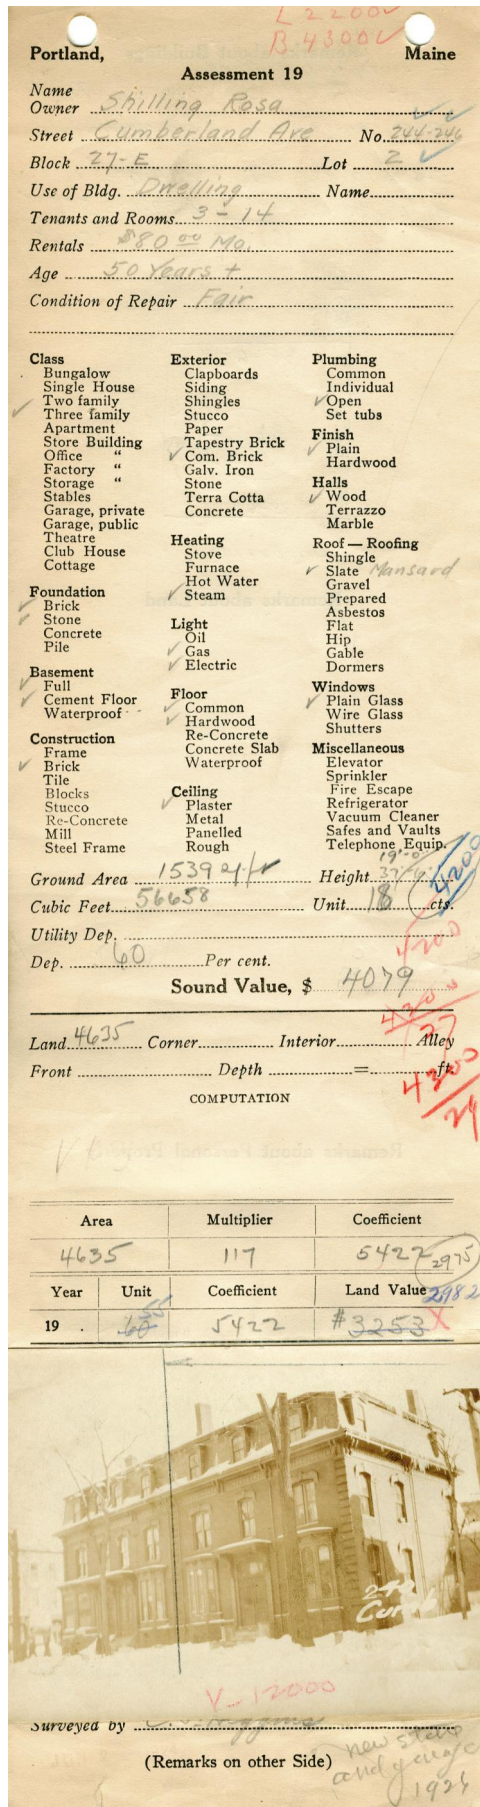 L 2200 ✓
B 4300 ✓
Portland, Maine
Assessment 19
Name
Owner Shilling Rosa
Street Cumberland Ave No. 244-246
Block 27-E Lot 2
Use of Bldg. Dwelling Name
Tenants and Rooms 3 - 14
Rentals $80 00 Mo.
Age 50 Years +
Condition of Repair Fair
Class
Bungalow
Single House
Two family
✓ Three family
Apartment
Store Building
Office "
Factory "
Storage "
Stables
Garage, private
Garage, public
Theatre
Club House
Cottage
Foundation
✓ Brick
✓ Stone
Concrete
Pile
Basement
✓ Full
✓ Cement Floor
Waterproof
Construction
Frame
✓ Brick
Tile
Blocks
Stucco
Re-Concrete
Mill
Steel Frame
Exterior
Clapboards
Siding
Shingles
Stucco
Paper
Tapestry Brick
✓ Com. Brick
Galv. Iron
Stone
Terra Cotta
Concrete
Heating
Stove
Furnace
Hot Water
✓ Steam
Light
Oil
✓ Gas
✓ Electric
Floor
✓ Common
✓ Hardwood
Re-Concrete
Concrete Slab
Waterproof
Ceiling
✓ Plaster
Metal
Panelled
Rough
Plumbing
Common
Individual
✓ Open
Set tubs
Finish
✓ Plain
Hardwood
Halls
✓ Wood
Terrazzo
Marble
Roof — Roofing
Shingle
✓ Slate Mansard
Gravel
Prepared
Asbestos
Flat
Hip
Gable
Dormers
Windows
✓ Plain Glass
Wire Glass
Shutters
Miscellaneous
Elevator
Sprinkler
Fire Escape
Refrigerator
Vacuum Cleaner
Safes and Vaults
Telephone Equip.
Ground Area 1539 Height
4200
Cubic Feet 56658 Unit 18 cts.
Utility Dep.
4200
Dep. 60 Per cent.
Sound Value, $ 4079
4300
27
Land 4635 Corner Interior Alley
Front Depth = ft.
4300
24
COMPUTATION
Area Multiplier Coefficient
4635 117 5422 2975
Year Unit Coefficient Land Value 2982
55
19 . 60 5422 #3253 X
242
V-12000
Surveyed by
(Remarks on other Side)
new
and
1924